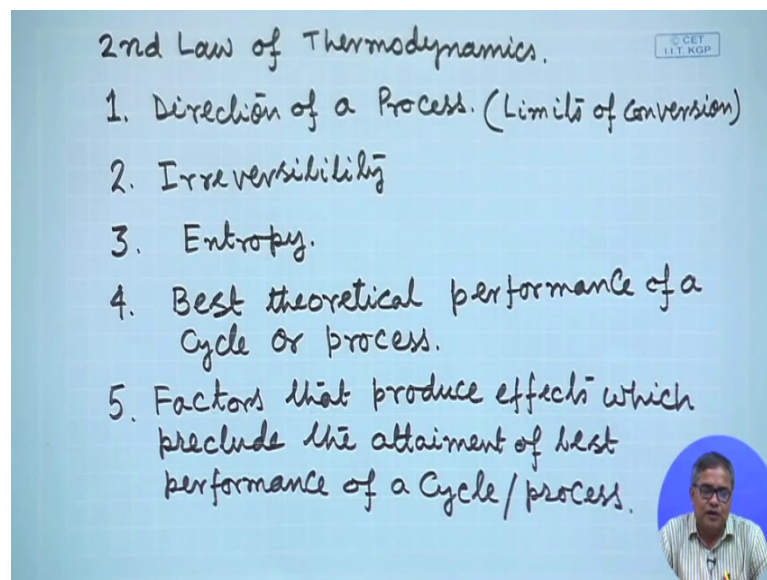 2nd Law of Thermodynamics.
© CET
I.I.T. KGP
1. Direction of a Process. (Limits of conversion)
2. Irreversibility
3. Entropy.
4. Best theoretical performance of a
Cycle or process.
5. Factors that produce effects which
preclude the attaiment of best
performance of a Cycle/process.